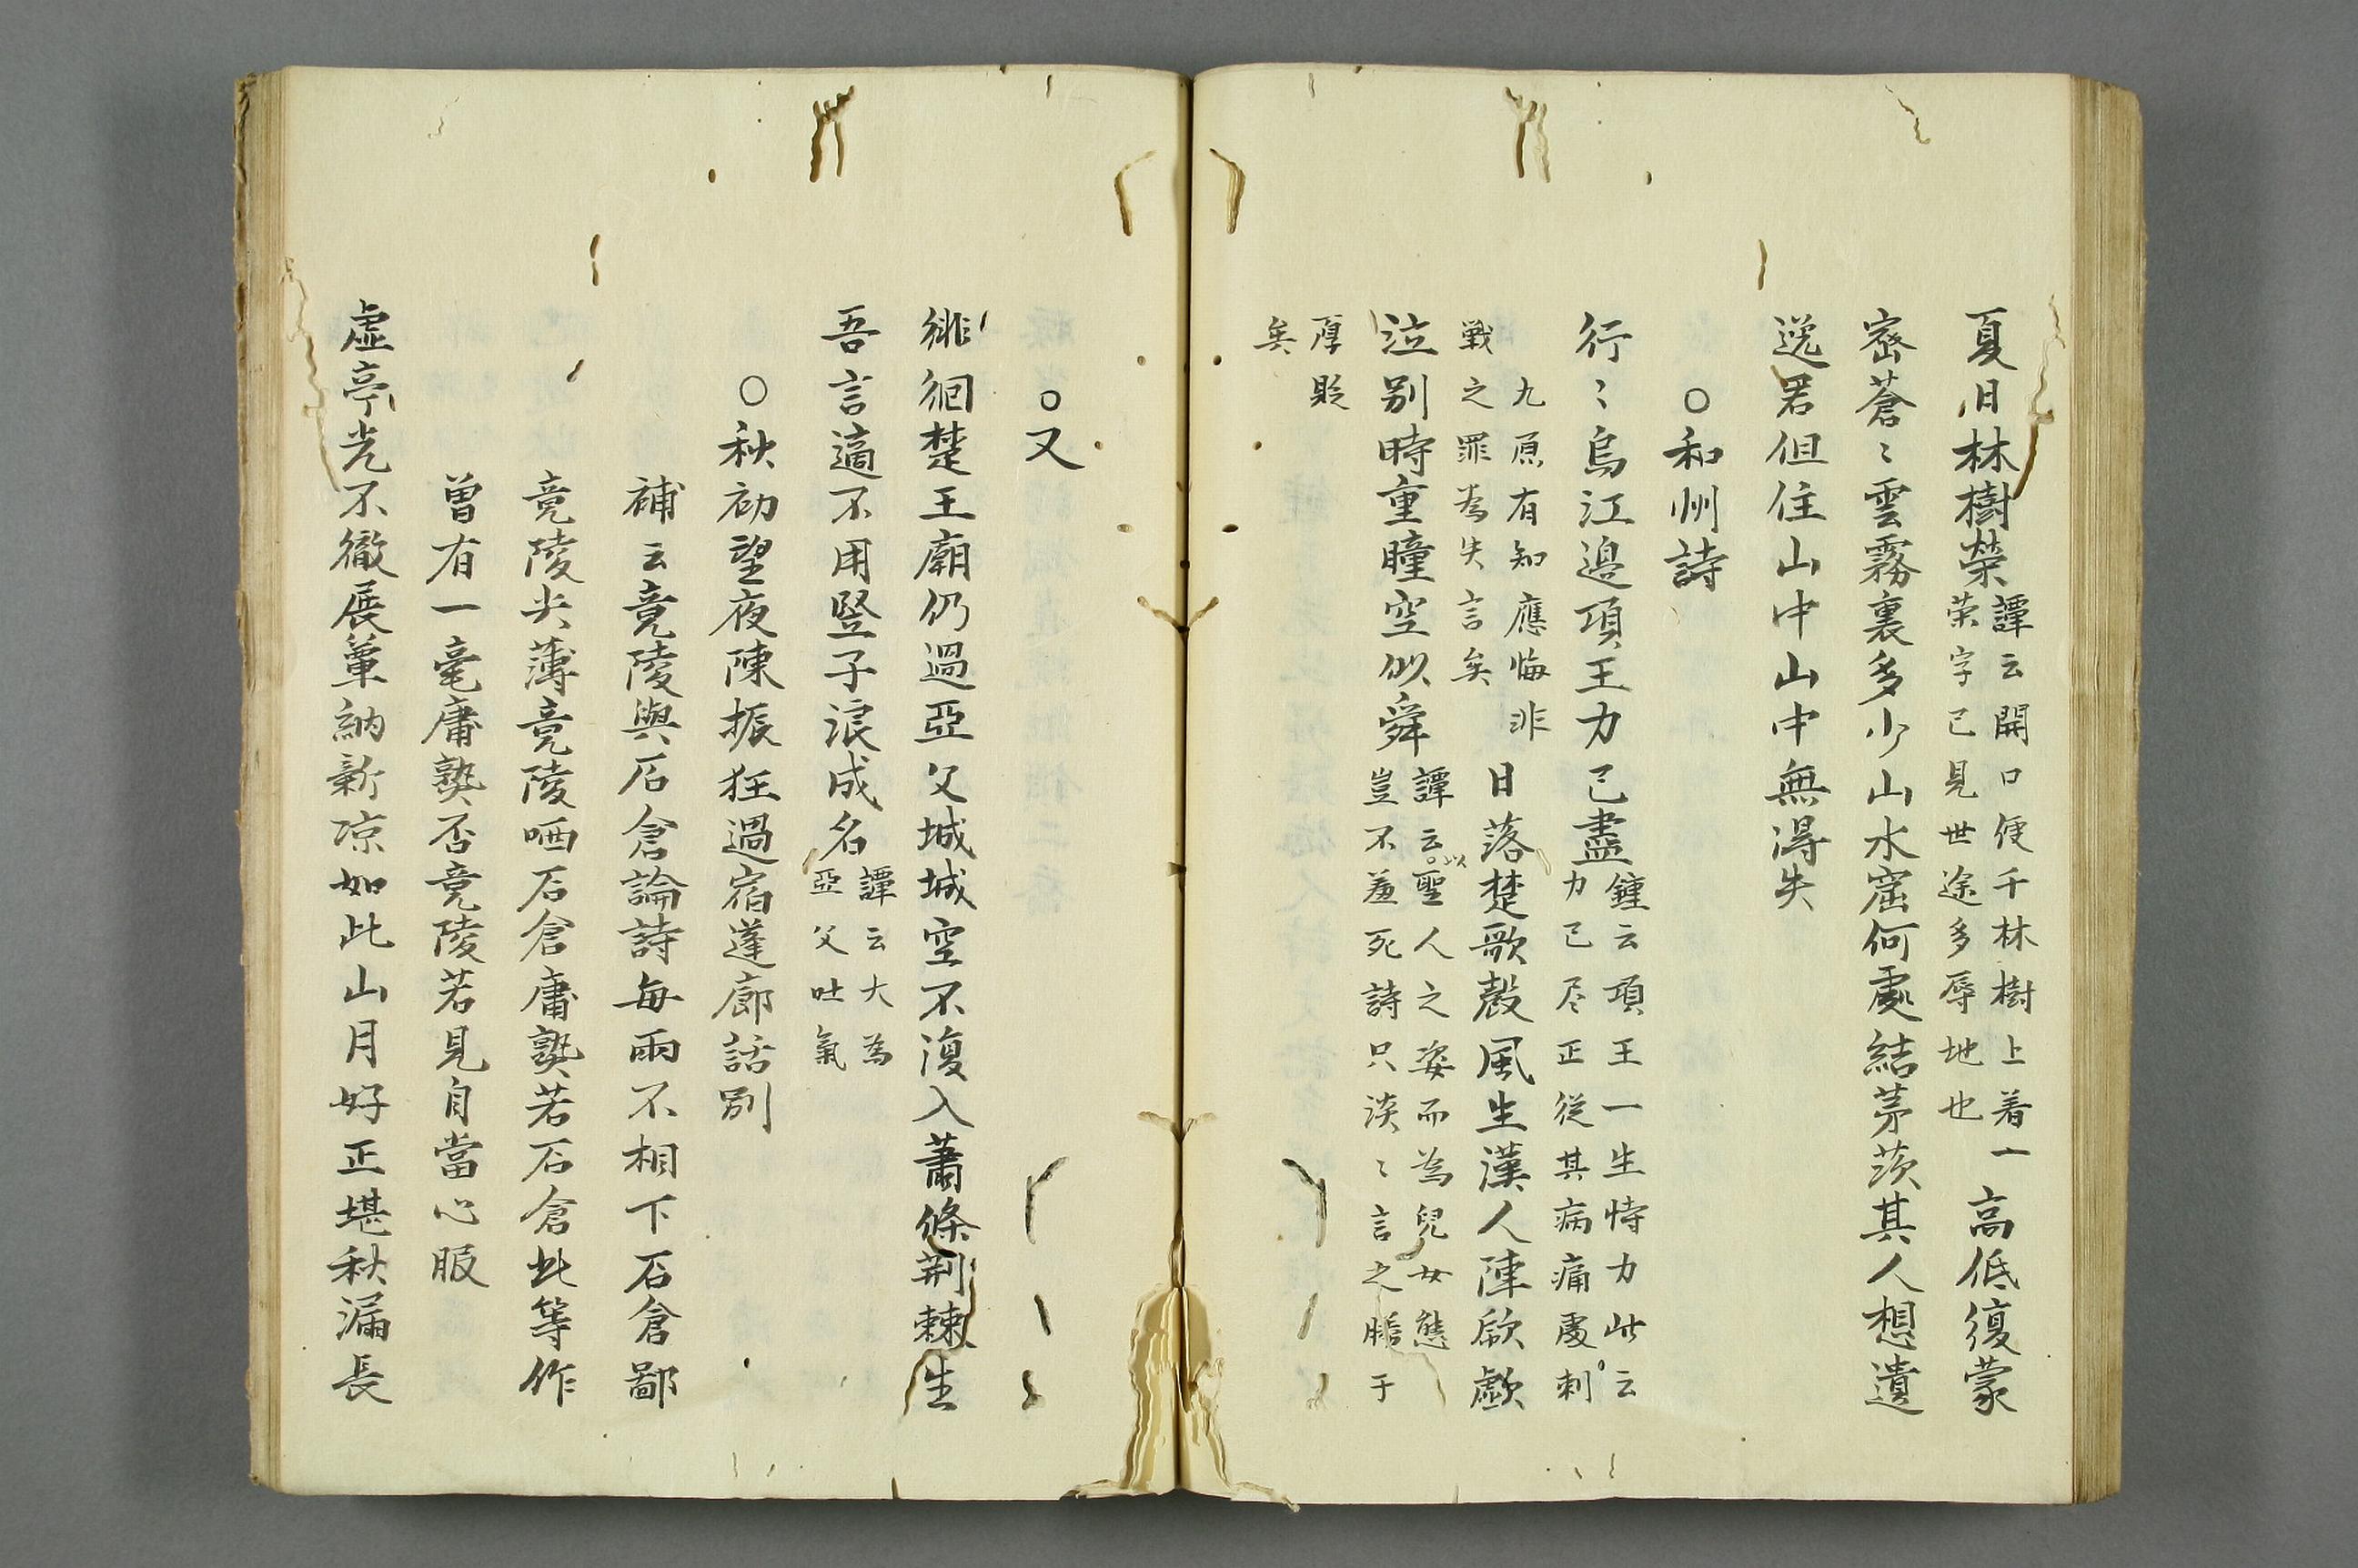 夏日林樹榮譚云開口便千林樹上着一榮字已見世途多辱地也高低復蒙
密蒼〻雲霧裏多少山水窟何處結茅茨其人想遺
逸君但住山中山中無得失
○和州詩
行〻烏江邉項王力已盡鍾云項王一生恃力此云力已尽正從其病痛處刺
九原有知應悔非戰之罪為失言矣日落楚歌殸風生漢人陣歔欷
泣別時重瞳空似舜譚云以聖人之姿而為兒女態豈不羞死詩只淡〻言之勝于
厚貶矣
○又
徘徊楚王廟仍過亞父城城空不復入蕭條荆棘生
吾言適不用竪子浪成名譚云大為亞父吐氣
○秋初望夜陳振狂過宿蓬廊話別
補云竟陵與石倉論詩每兩不相下石倉鄙
竟陵尖薄竟陵哂石倉庸熟若石倉此等作
曽有一毫庸熟否竟陵若見自當心服
虚亭光不徹展簟納新凉如此山月好正堪秋漏長